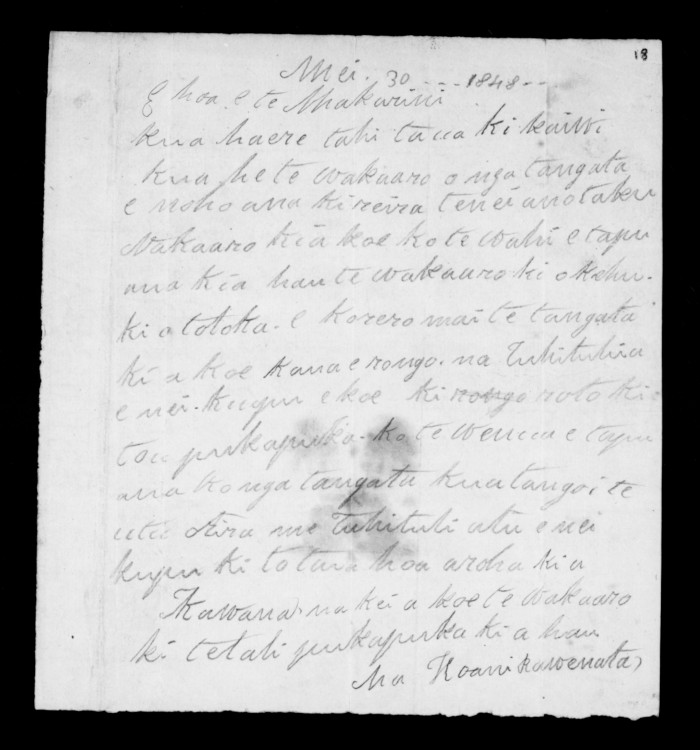 18
Mei. 30 --- 1848--
E hoa e te Makarini
kua haere tahi taua ki kaiwi
kua he te wakaaro o nga tangata
e noho ana ki reira tenei ano taku
Wakaaro kia koe ko te wahi e tapu
ana kia hau te wakaaro ki okehu.
ki o totoka. e korero mai te tangata
ki a koe kaua e rongo. na Tuhituhia
e nei. kupu e koe ki rongo roto ki
tou pukapuka. ko te wenua e tapu
ana ko nga tangata kua tango i te
utu me Tuhituhi atu e nei
kupu ki to taua hoa aroha ki a
Kawana, na kei a koe te wakaaro
ki tetahi pukapuka ki a hau
Na Hoani kawenata)